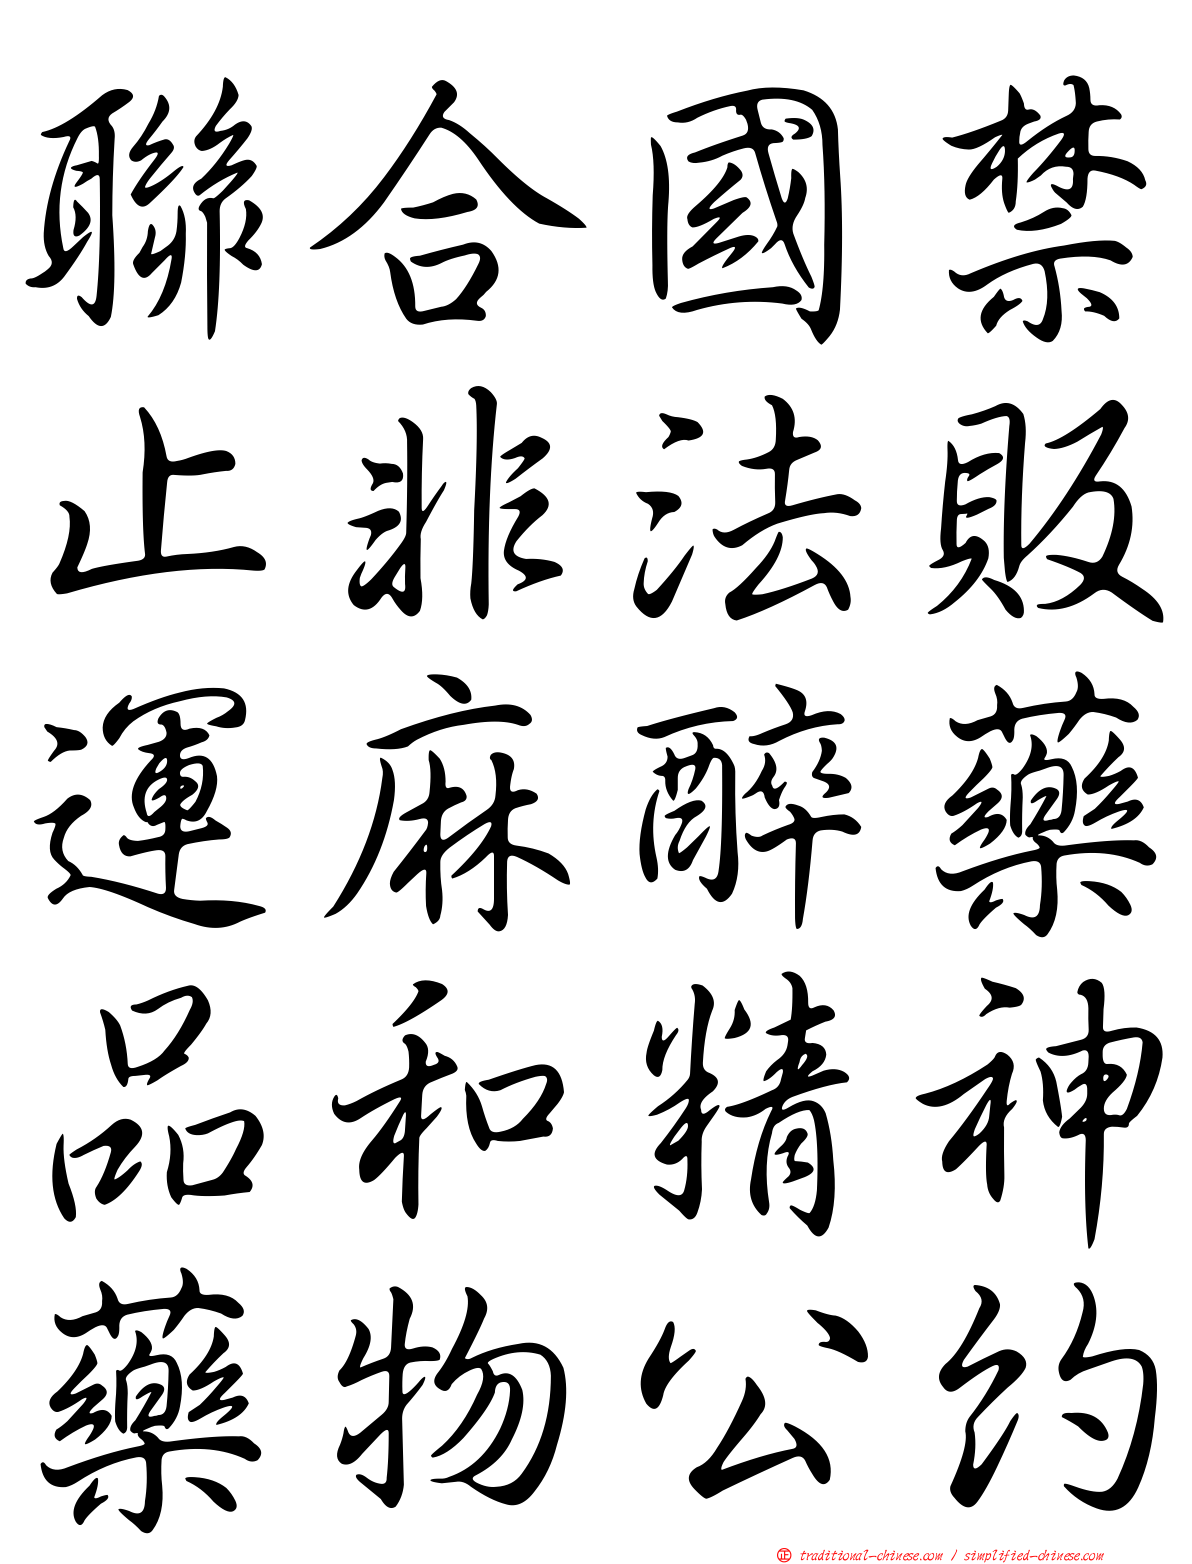 聯合國禁
止非法販
運麻醉藥
品和精神
藥物公約
正 traditional-chinese.com / simplified-chinese.com